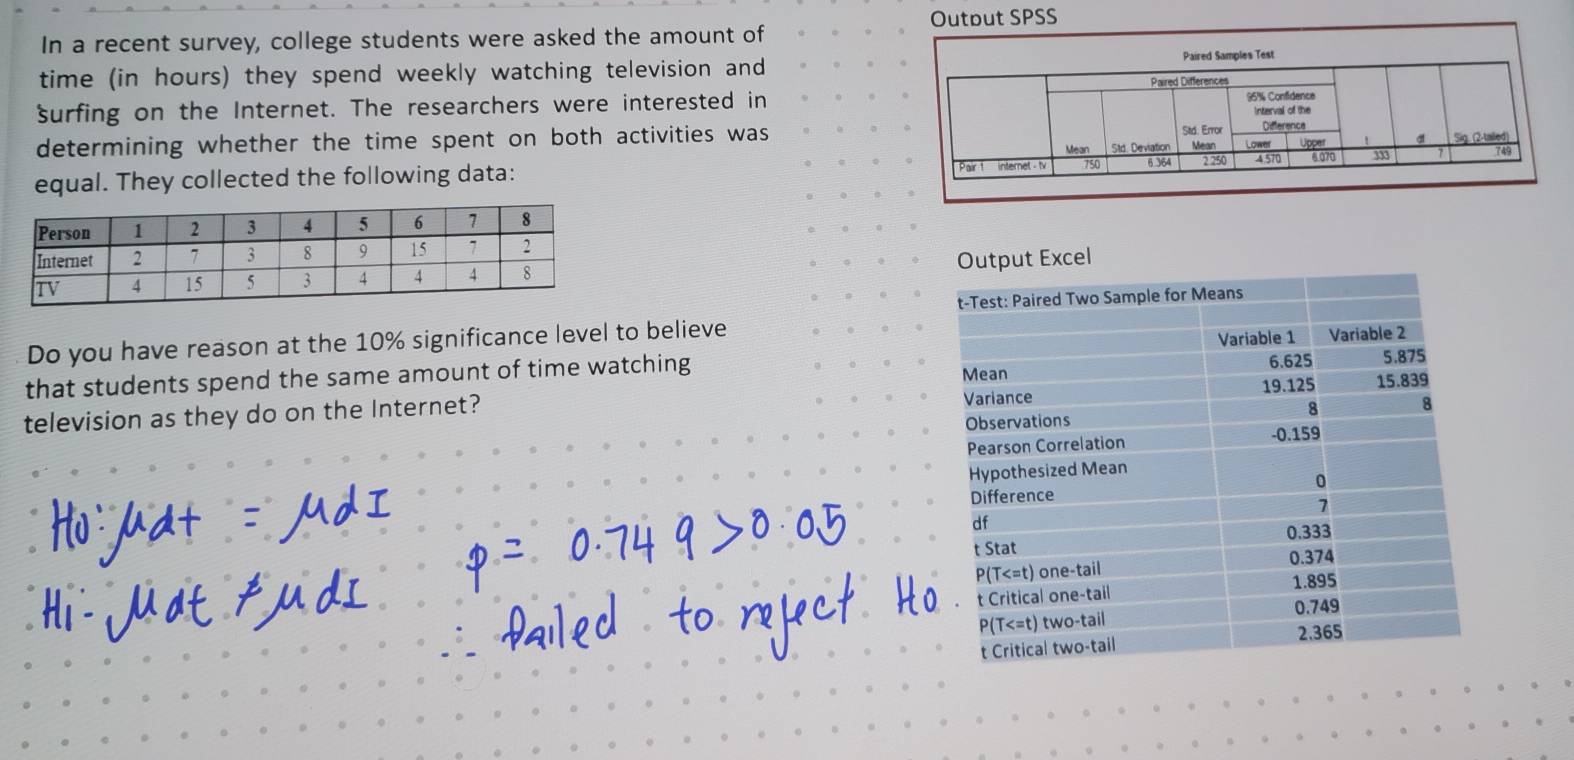 In a recent survey, college students were asked the amount of
time (in hours) they spend weekly watching television and
surfing on the Internet. The researchers were interested in
determining whether the time spent on both activities was
equal. They collected the following data:
Person 1 2 3 4 5 6 7 8
Internet 2 7 3 8 9 15 7 2
TV 4 15 5 3 4 4 4 8
Do you have reason at the 10% significance level to believe
that students spend the same amount of time watching
television as they do on the Internet?
H0: μdt = μdI
Hi- μdt ≠ μdI
p = 0.749 > 0.05
∴ failed to reject H0.
Output SPSS
Paired Samples Test
Paired Differences
95% Confidence
Interval of the
Difference
Mean Std. Deviation Std. Error Mean Lower Upper t df Sig. (2-tailed)
Pair 1 internet - tv .750 6.364 2.250 -4.570 6.070 .333 7 .749
Output Excel
t-Test: Paired Two Sample for Means
Variable 1 Variable 2
Mean 6.625 5.875
Variance 19.125 15.839
Observations 8 8
Pearson Correlation -0.159
Hypothesized Mean
Difference 0
df 7
t Stat 0.333
P(T<=t) one-tail 0.374
t Critical one-tail 1.895
P(T<=t) two-tail 0.749
t Critical two-tail 2.365